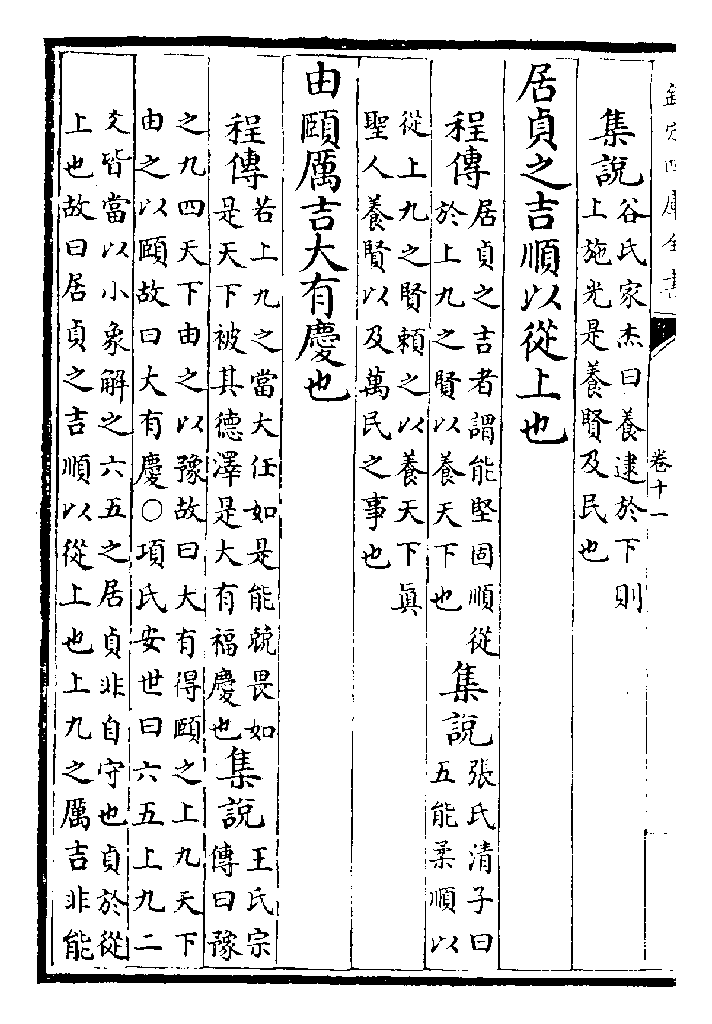 欽定四庫全書
卷十一
集說谷氏家杰曰養逮於下則
上施光是養賢及民也
居貞之吉順以從上也
程傳居貞之吉者謂能堅固順從
於上九之賢以養天下也集說張氏清子曰
五能柔順以
從上九之賢賴之以養天下眞
聖人養賢以及萬民之事也
由頤厲吉大有慶也
程傳若上九之當大任如是能兢畏如
是天下被其德澤是大有福慶也集說王氏宗
傳曰豫
之九四天下由之以豫故曰大有得頤之上九天下
由之以頤故曰大有慶○項氏安世曰六五上九二
爻皆當以小象解之六五之居貞非自守也貞於從
上也故曰居貞之吉順以從上也上九之厲吉非能